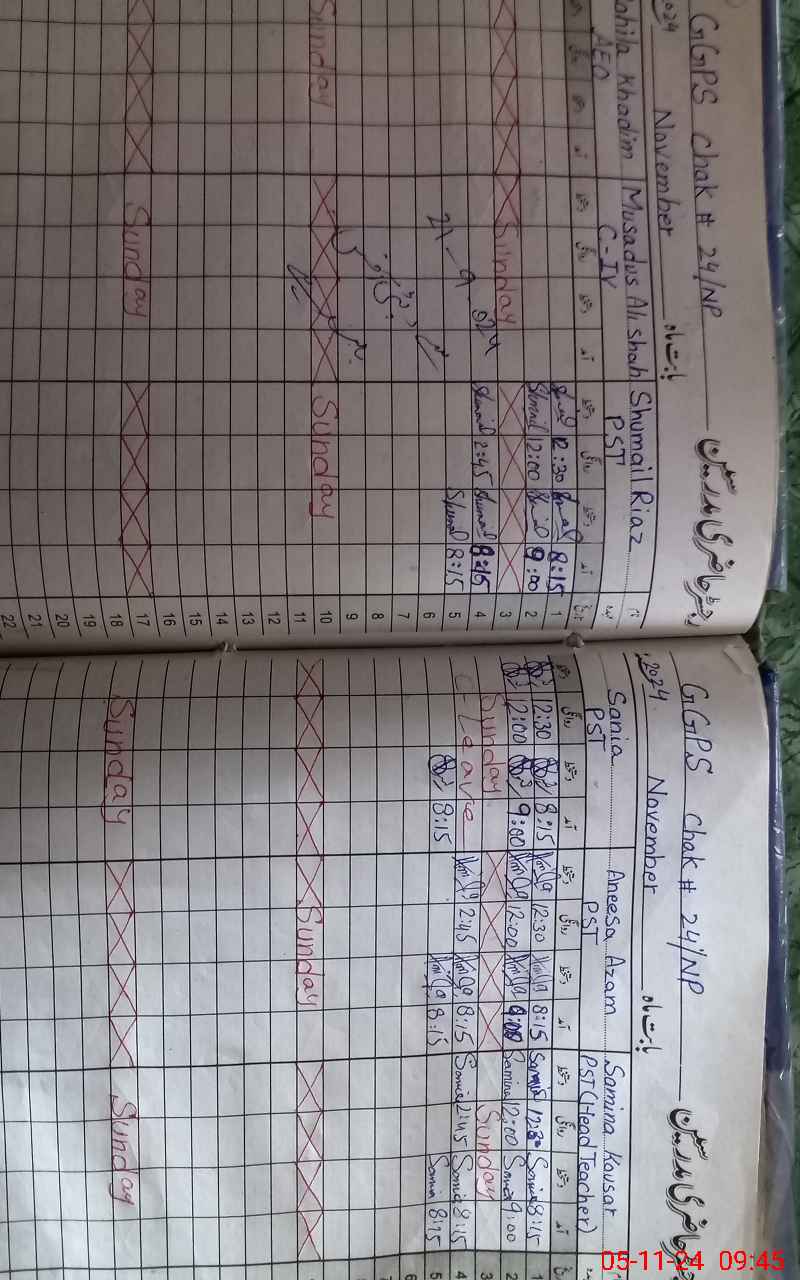 GGPS Chak # 24/NP
رجسٹر حاضری مدرسین
2024 November بابت ماہ
Khadim
AEO
Musadus Ali Shah
C-IV
Shumail Riaz
PST
نام
عہدہ
دستخط روانگی دستخط آمد تاریخ
12:30 8:15 1
Shumail 12:00 9:00 2
Sunday 3
Shumail 2:45 Shumail 8:15 4
Shumail 8:15 5
6
7
8
9
Sunday Sunday 10
11
12
13
14
15
16
Sunday 17
18
19
20
21
22
GGPS Chak # 24/NP
رجسٹر حاضری مدرسین
2024 November بابت ماہ
Sania
PST
Aneesa Azam
PST
Samina Kausar
PST (Head Teacher)
دستخط روانگی دستخط آمد
12:30 8:15 12:30 8:15 Samina 12:30 Samina 8:15 1
12:00 9:00 12:00 9:00 Samina 12:00 Samina 9:00 2
Sunday Sunday 3
C-Leave 2:45 8:15 Samina 2:45 Samina 8:15 4
8:15 8:15 Samina 8:15 5
6
Sunday
Sunday Sunday
05-11-24 09:45